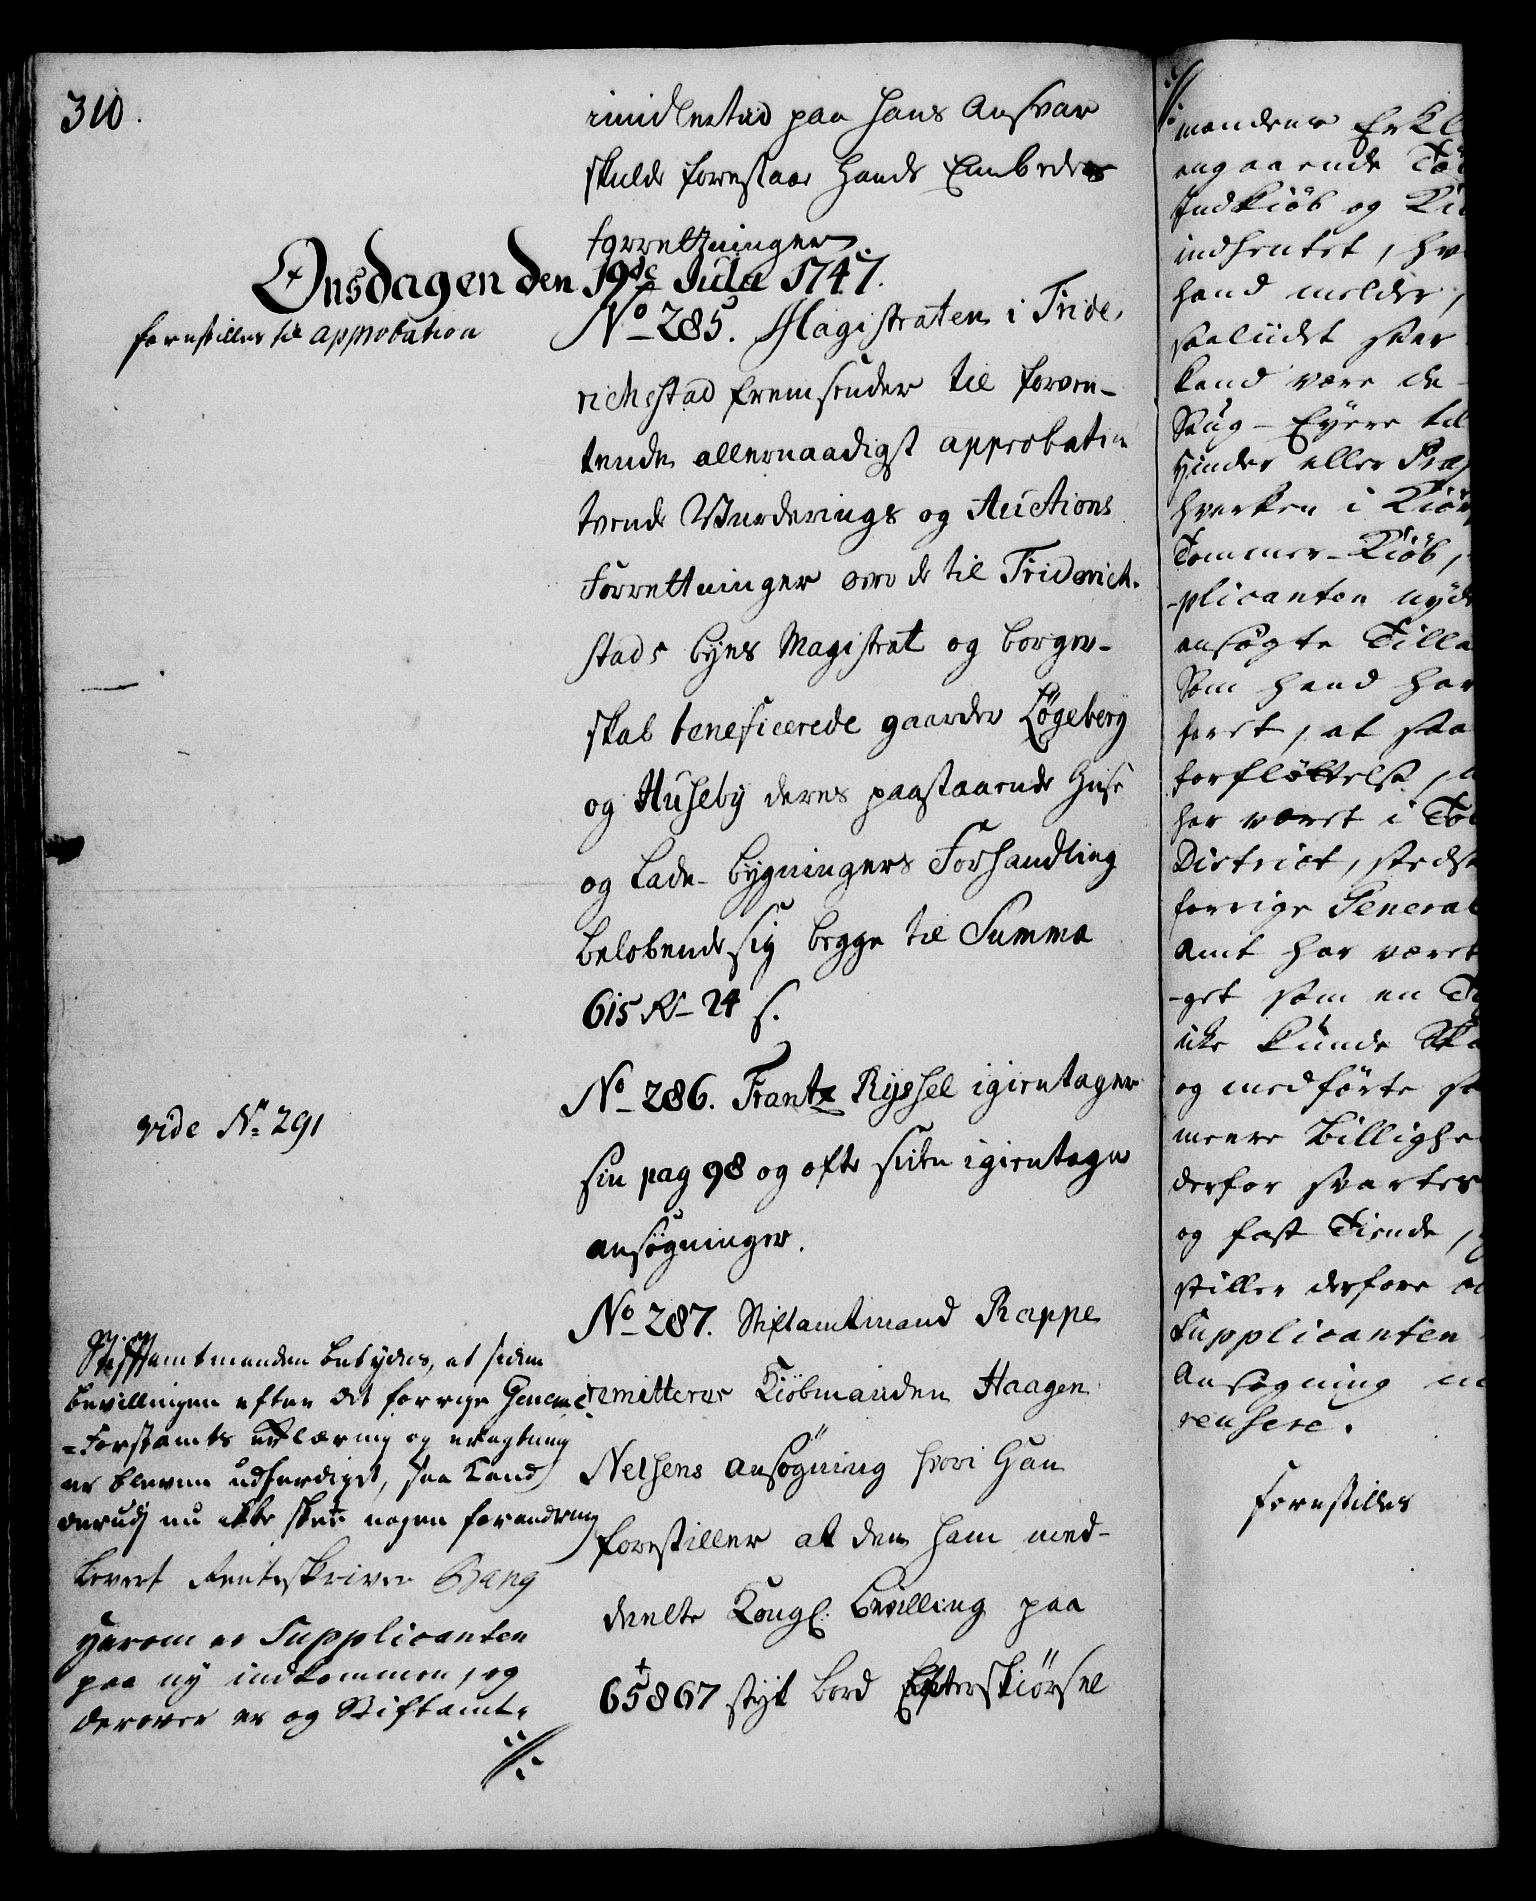 310.
imidlertid paa hans Ansvar
skulde forestaae hands Embedes
forrettninger.
Onsdagen den 19de Julii 1747.
forestilles til approbation
No 285. Magistraten i Fride,
richstad fremsender til forven-
tende allernaadigst approbation
tvende Vurderings og Auctions
Forrettninger over de til Friderich-
stads byes Magistrat og borger-
skab beneficerede gaarder Løgeberg
og Huseby deres paastaaende Huse
og Lade-bygningers Forhandling
beløbende sig begge til Summa
615 Rd 24 s.
vide No 291
No 286. Frantz Ryssel igientager
sin pag 98 og ofte siden igientagne
ansøgninger.
No 287. Stiftamtmand Rappe
remitterer Kiøbmanden Haagen
Nelsens ansøgning hvori Han
forestiller at den ham med-
deelte Kongl: bevilling paa
65867 styk bord Efterskiørsel
Stiftamtmanden betydes, at siden
bevillingen efter det forrige General
=Forstamts erklæring og eragtning
er bleven udferdiget, saa kand
derudj nu ikke skee nogen forandring
Levert Renteskriver Bang
Herom er Supplicanten
paa ny indkommen, og
derover er og Stiftamt,
./.
./.
mandens Erkl
angaaende To
Indkiøb og Ki
indhentet, hv
hand melder,
saaliidet som
kand være de
Saug-Eyere til
Hinder eller Præj
hverken i Kiør
Tømmer-Kiøb,
-plicanten nyde
ansøgte Tilla
Som hand har
ført, at saa
forfløttelse,
har været i To
District, stedse
forrige General
Amt har været
-get som en
ikke kunde Sk
og medførte
meere Billighe
derfor svartes
og fast Tiende,
stiller derfore
Supplicanten
Ansøgning
rensere.
forestilles